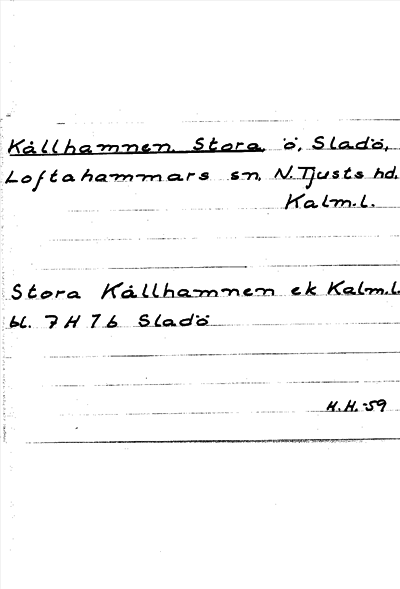 Källhamnen, Stora, ö, Sladö,
Loftahammars sn, N. Tjusts hd,
Kalm.l.
Stora Källhamnen ek Kalm.l.
bl. 7 H 7 b Sladö
H.H. -59